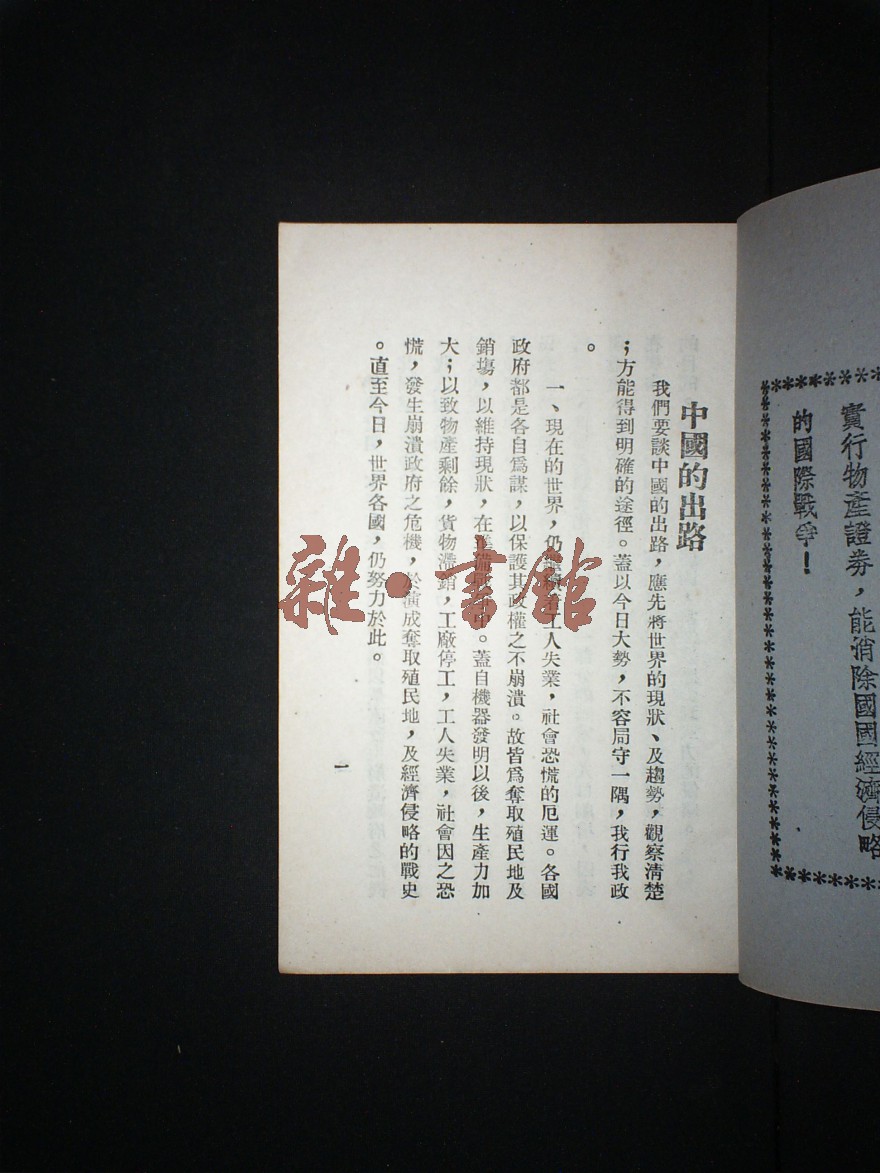 實行物產證券，能消除國國經濟侵略
的國際戰爭！
中國的出路
我們要談中國的出路，應先將世界的現狀、及趨勢，觀察清楚
；方能得到明確的途徑。蓋以今日大勢，不容局守一隅，我行我政
。
一、現在的世界，仍工人失業，社會恐慌的厄運。各國
政府都是各自爲謀，以保護其政權之不崩潰。故皆爲奪取殖民地及
銷塲，以維持現狀，在中。蓋自機器發明以後，生產力加
大；以致物產剩餘，貨物滯銷，工廠停工，工人失業，社會因之恐
慌，發生崩潰政府之危機，於演成奪取殖民地，及經濟侵略的戰史
。直至今日，世界各國，仍努力於此。
一
雜·書館